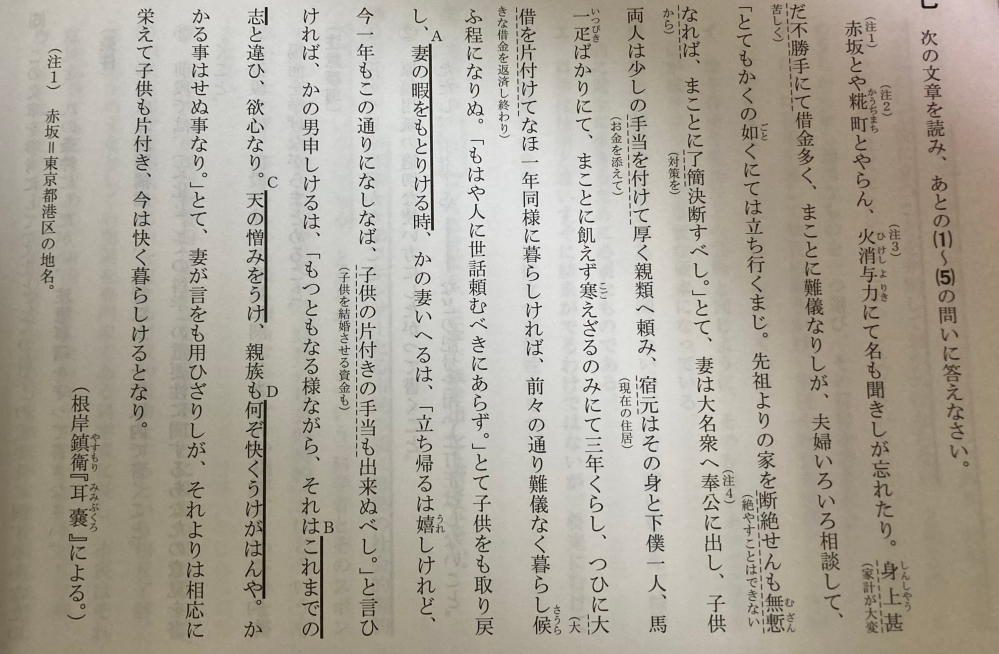 次の文章を読み、あとの(1)〜(5)の問いに答えなさい。
赤坂とや糀町とやらん、火消与力にて名も聞きしが忘れたり。身上甚
だ不勝手にて借金多く、まことに難儀なりしが、夫婦いろいろ相談して、
「とてもかくの如くにては立ち行くまじ。先祖よりの家を断絶せんも無慙
なれば、まことに了簡決断すべし。」とて、妻は大名衆へ奉公に出し、子供
両人は少しの手当を付けて厚く親類へ頼み、宿元はその身と下僕一人、馬
一疋ばかりにて、まことに飢えず寒えざるのみにて三年くらし、つひに大
借を片付けてなほ一年同様に暮らしければ、前々の通り難儀なく暮らし候
ふ程になりぬ。「もはや人に世話頼むべきにあらず。」とて子供をも取り戻
し、妻の暇をもとりける時、かの妻いへるは、「立ち帰るは嬉しけれど、
今一年もこの通りになしなば、子供の片付きの手当も出来ぬべし。」と言ひ
ければ、かの男申しけるは、「もつともなる様ながら、それはこれまでの
志と違ひ、欲心なり。天の憎みをうけ、親族も何ぞ快くうけがはんや。か
かる事はせぬ事なり。」とて、妻が言をも用ひざりしが、それよりは相応に
栄えて子供も片付き、今は快く暮らしけるとなり。
（根岸鎮衛『耳囊』による。）
（注1）　赤坂＝東京都港区の地名。
（注1）
（注2）
かうぢまち
（注3）
ひけしよりき
しんしやう
（家計が大変
苦しく）
ごと
むざん
（絶やすことはできない
から）
（対策を）
（注4）
（お金を添えて）
（現在の住居）
いつぴき
こご
（大
きな借金を返済し終わり）
さうら
A
うれ
（子供を結婚させる資金も）
B
C
D
やすもり
みみぶくろ